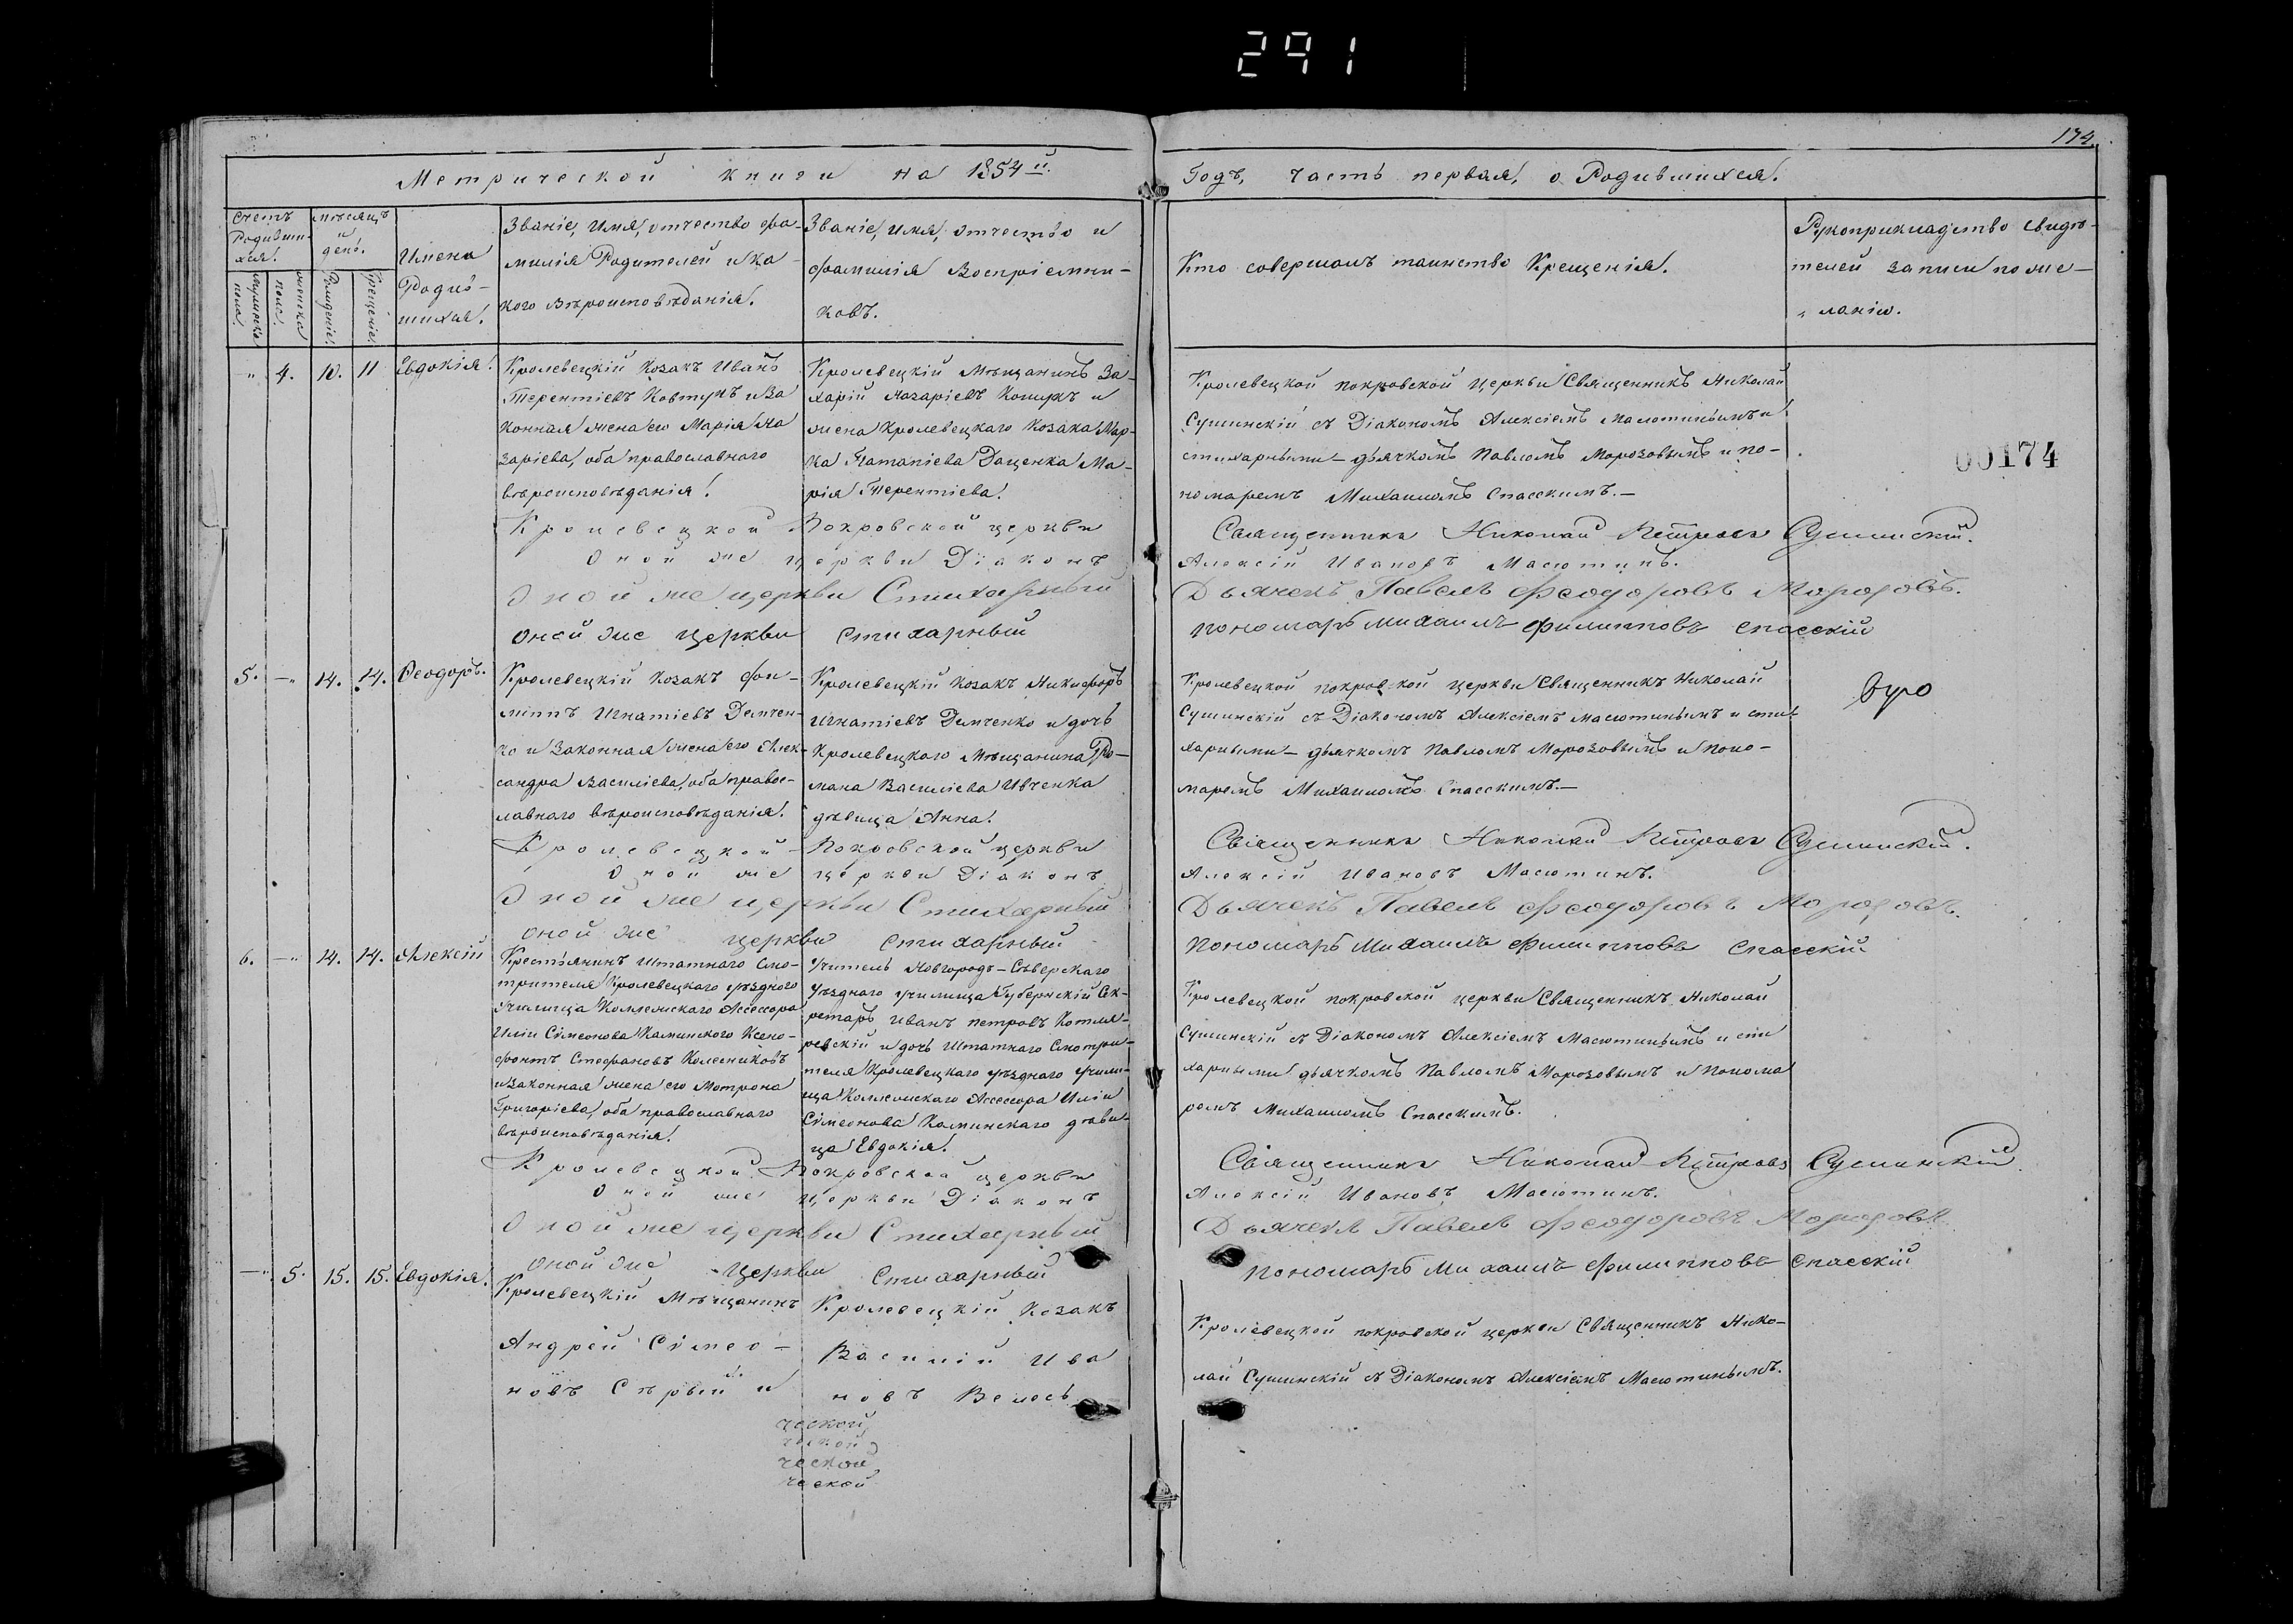 291
174.
Метрической книги на 1854й.
Годъ, часть первая, о Родившихся.
Счетъ Родившихся.
мужеска пола.
женска пола.
Мѣсяцъ и день.
Рожденіе.
Крещеніе.
Имена Родившихся.
Званіе, Имя, отчество фа-
милія Родителей и ка-
кого вѣроисповѣданія.
Званіе, имя, отчество и
фамилія Воспріемни-
ковъ.
Кто совершалъ таинство Крещенія.
Рукоприкладство свидѣ-
телей записи по же-
ланію.
4. 10. 11 Евдокія.
Кролевецкій Козакъ Иванъ
Терентіевъ Ковтунъ и За
конная жена его Марія На
заріева, оба православнаго
вѣроисповѣданія.
Кролевецкій Мѣщанинъ За-
харій Назаріевъ и
жена Кролевецкаго Козака Мар-
ка Даценка Ма-
рія Терентіева.
Кролевецкой покровской Церкви Священникъ Николай
Сушинскій съ Діакономъ Алексіемъ Масютинымъ и
стихарными – дьячкомъ Павломъ Морозовымъ и по-
номаремъ Михаиломъ Спасскимъ.–
00174
Кролевецкой Покровской церкви Священникъ Николай Петровъ Сушинскій.
Оной же церкви Діаконъ Алексій Ивановъ Масютинъ.
Оной же церкви Стихарный Дьячекъ Павелъ Феодоровъ Морозовъ.
Оной же церкви стихарный пономарь Михаилъ Филипповъ Спасскій
5. 14. 14. Феодоръ.
Кролевецкій Козакъ Фи-
липпъ Игнатіевъ Демчен-
ко и Законная жена его Алек-
сандра Василіева, оба правос-
лавнаго вѣроисповѣданія.
Кролевецкій Козакъ Никифоръ
Игнатіевъ Демченко и дочь
Кролевецкаго Мѣщанина Ро-
мана Василіева Ивченка
дѣвица Анна.
Кролевецкой покровской церкви Священникъ Николай
Сушинскій съ Діакономъ Алексіемъ Масютинымъ и сти
харными – дьячкомъ Павломъ Морозовымъ и поно-
маремъ Михаиломъ Спасскимъ.–
Кролевецкой Покровской церкви Священникъ Николай Петровъ Сушинскій.
Оной же церкви Діаконъ Алексій Ивановъ Масютинъ.
Оной же церкви Стихарный Дьячекъ Павелъ Феодоровъ Морозовъ.
Оной же церкви стихарный Пономарь Михаилъ Филипповъ Спасскій
6. 14. 14. Алексій
Крестьянинъ Штатнаго Смо-
трителя Кролевецкаго уѣзднаго
Училища Коллежскаго Ассесора
Иліи Сімеонова Каминскаго Ксено-
фонтъ Стефановъ Колесниковъ
и Законная жена его Мотрона
Григоріева, оба православнаго
вѣроисповѣданія.
Учитель Новгородъ–Сѣверскаго
уѣзднаго училища Губернскій Сек-
ретарь Иванъ Петровъ Котля-
ревскій и дочь Штатнаго Смотри-
теля Кролевецкаго уѣзднаго учили-
ща Коллежскаго Ассесора Иліи
Сімеонова Каминскаго дѣви-
ца Евдокія.
Кролевецкой покровской церкви Священникъ Николай
Сушинскій съ Діакономъ Алексіемъ Масютинымъ и сти
харными дьячкомъ Павломъ Морозовымъ и понома
ремъ Михаиломъ Спасскимъ.
Кролевецкой Покровской церкви Священникъ Николай Петровъ Сушинскій.
Оной же церкви Діаконъ Алексій Ивановъ Масютинъ.
Оной же церкви Стихарный Дьячекъ Павелъ Феодоровъ Морозовъ.
Оной же церкви Стихарный Пономарь Михаилъ Филипповъ Спасскій
5. 15. 15. Евдокія.
Кролевецкій Мѣщанинъ
Андрей Сімео-
новъ Сѣрый и
Кролевецкій Козакъ
Василій Ива
новъ
Кролевецкой покровской церкви Священникъ Нико-
лай Сушинскій съ Діакономъ Алексіемъ Масютинымъ.
ческой
ческой
ческой
ческой